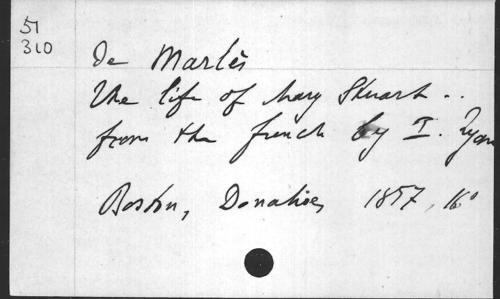 51
310
De Marlès
The life of Mary Stuart ..
from the french by I. Ryan
Boston, Donahoe, 1857, 16°